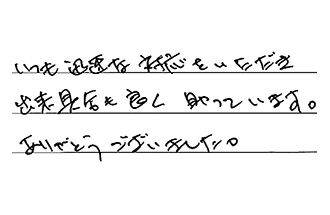 いつも迅速な対応をいただき
出来具合も良く 助っています。
ありがとうございました。